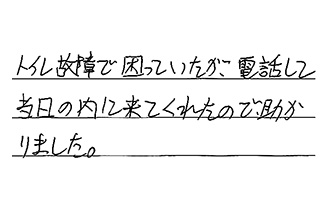 トイレ故障で困っていたが、電話して
当日の内に来てくれたので助か
りました。